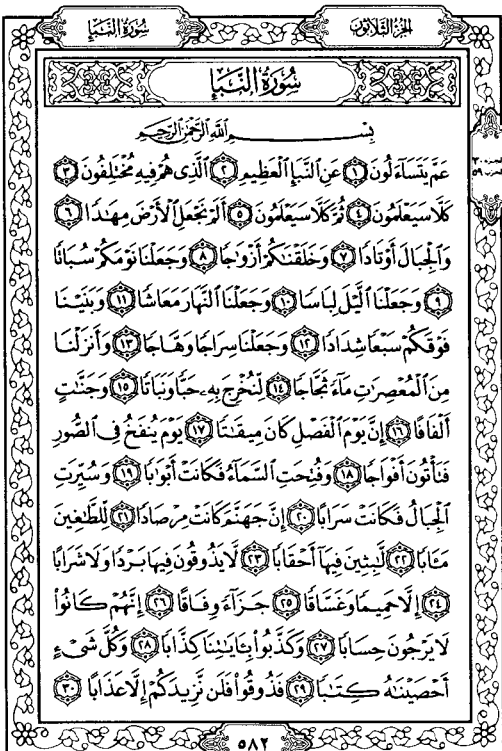 سُورَةُ النَّبَإِ
الجُزْءُ الثَّلَاثُونَ
سُورَةُ النَّبَإِ
بِسْمِ اللَّهِ الرَّحْمَٰنِ الرَّحِيمِ
عَمَّ يَتَسَاءَلُونَ ١ عَنِ النَّبَإِ الْعَظِيمِ ٢ الَّذِى هُمْ فِيهِ مُخْتَلِفُونَ ٣
كَلَّا سَيَعْلَمُونَ ٤ ثُمَّ كَلَّا سَيَعْلَمُونَ ٥ أَلَمْ نَجْعَلِ الْأَرْضَ مِهَٰدًا ٦
وَالْجِبَالَ أَوْتَادًا ٧ وَخَلَقْنَٰكُمْ أَزْوَٰجًا ٨ وَجَعَلْنَا نَوْمَكُمْ سُبَاتًا
٩ وَجَعَلْنَا الَّيْلَ لِبَاسًا ١٠ وَجَعَلْنَا النَّهَارَ مَعَاشًا ١١ وَبَنَيْنَا
فَوْقَكُمْ سَبْعًا شِدَادًا ١٢ وَجَعَلْنَا سِرَاجًا وَهَّاجًا ١٣ وَأَنزَلْنَا
مِنَ الْمُعْصِرَٰتِ مَآءً ثَجَّاجًا ١٤ لِّنُخْرِجَ بِهِۦ حَبًّا وَنَبَاتًا ١٥ وَجَنَّٰتٍ
أَلْفَافًا ١٦ إِنَّ يَوْمَ الْفَصْلِ كَانَ مِيقَٰتًا ١٧ يَوْمَ يُنفَخُ فِى الصُّورِ
فَتَأْتُونَ أَفْوَاجًا ١٨ وَفُتِحَتِ السَّمَآءُ فَكَانَتْ أَبْوَٰبًا ١٩ وَسُيِّرَتِ
الْجِبَالُ فَكَانَتْ سَرَابًا ٢٠ إِنَّ جَهَنَّمَ كَانَتْ مِرْصَادًا ٢١ لِّلطَّٰغِينَ
مَـَٔابًا ٢٢ لَّٰبِثِينَ فِيهَآ أَحْقَابًا ٢٣ لَّا يَذُوقُونَ فِيهَا بَرْدًا وَلَا شَرَابًا
٢٤ إِلَّا حَمِيمًا وَغَسَّاقًا ٢٥ جَزَآءً وِفَاقًا ٢٦ إِنَّهُمْ كَانُوا۟
لَا يَرْجُونَ حِسَابًا ٢٧ وَكَذَّبُوا۟ بِـَٔايَٰتِنَا كِذَّابًا ٢٨ وَكُلَّ شَىْءٍ
أَحْصَيْنَٰهُ كِتَٰبًا ٢٩ فَذُوقُوا۟ فَلَن نَّزِيدَكُمْ إِلَّا عَذَابًا ٣٠
٥٨٢